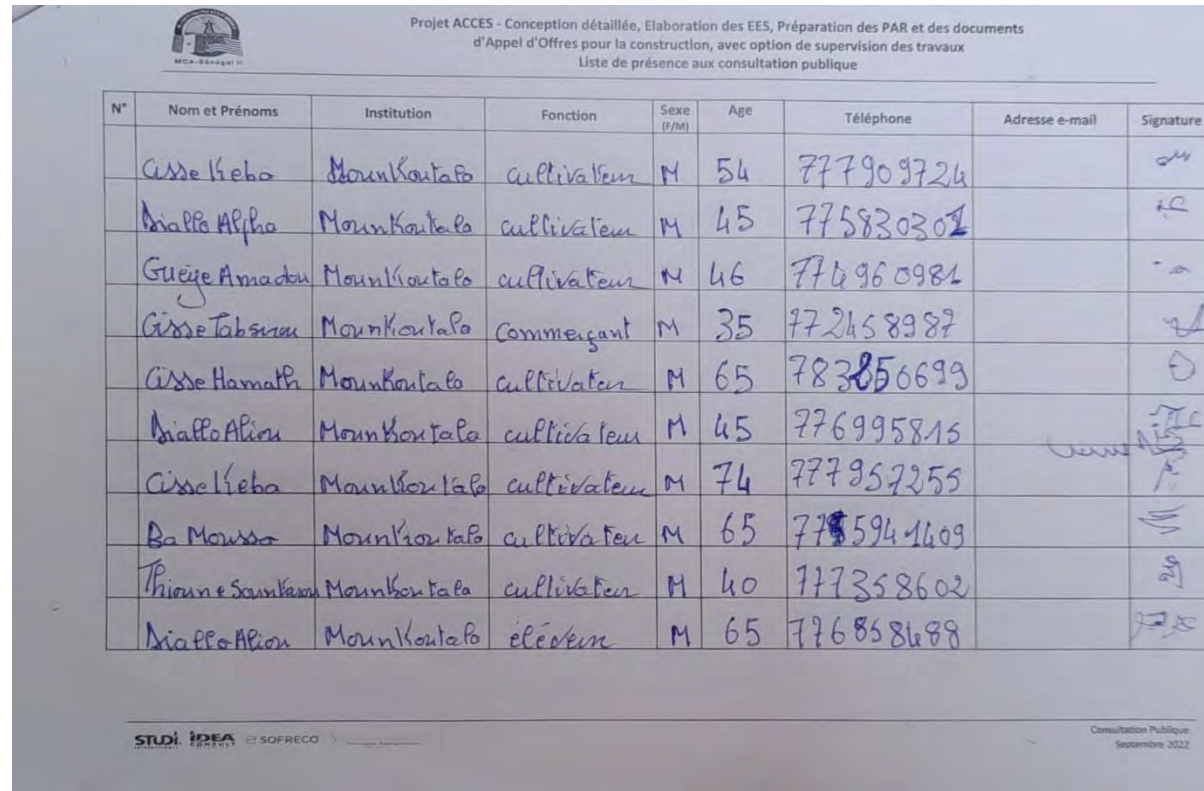 MCA-Sénégal II
Projet ACCES - Conception détaillée, Elaboration des EES, Préparation des PAR et des documents
d'Appel d'Offres pour la construction, avec option de supervision des travaux
Liste de présence aux consultation publique
N° Nom et Prénoms Institution Fonction Sexe (F/M) Age Téléphone Adresse e-mail Signature
Cisse Keba Mounkoutalo cultivateur M 54 777909724
Diallo Alpha Mounkoutalo cultivateur M 45 775830301
Gueye Amadou Mounkoutalo cultivateur M 46 774960981
Cisse Mounkoutalo Commerçant M 35 772458987
Cisse Hamath Mounkoutalo cultivateur M 65
Diallo Aliou Mounkoutalo cultivateur M 45 776995815
Cisse Keba Mounkoutalo cultivateur M 74 777957255
Ba Moussa Mounkoutalo cultivateur M 65
Thioune Mounkoutalo cultivateur M 40 777358602
Diallo Aliou Mounkoutalo éléveur M 65 776858488
STUDI IDEA CONSULT SOFRECO
Consultation Publique
Septembre 2022